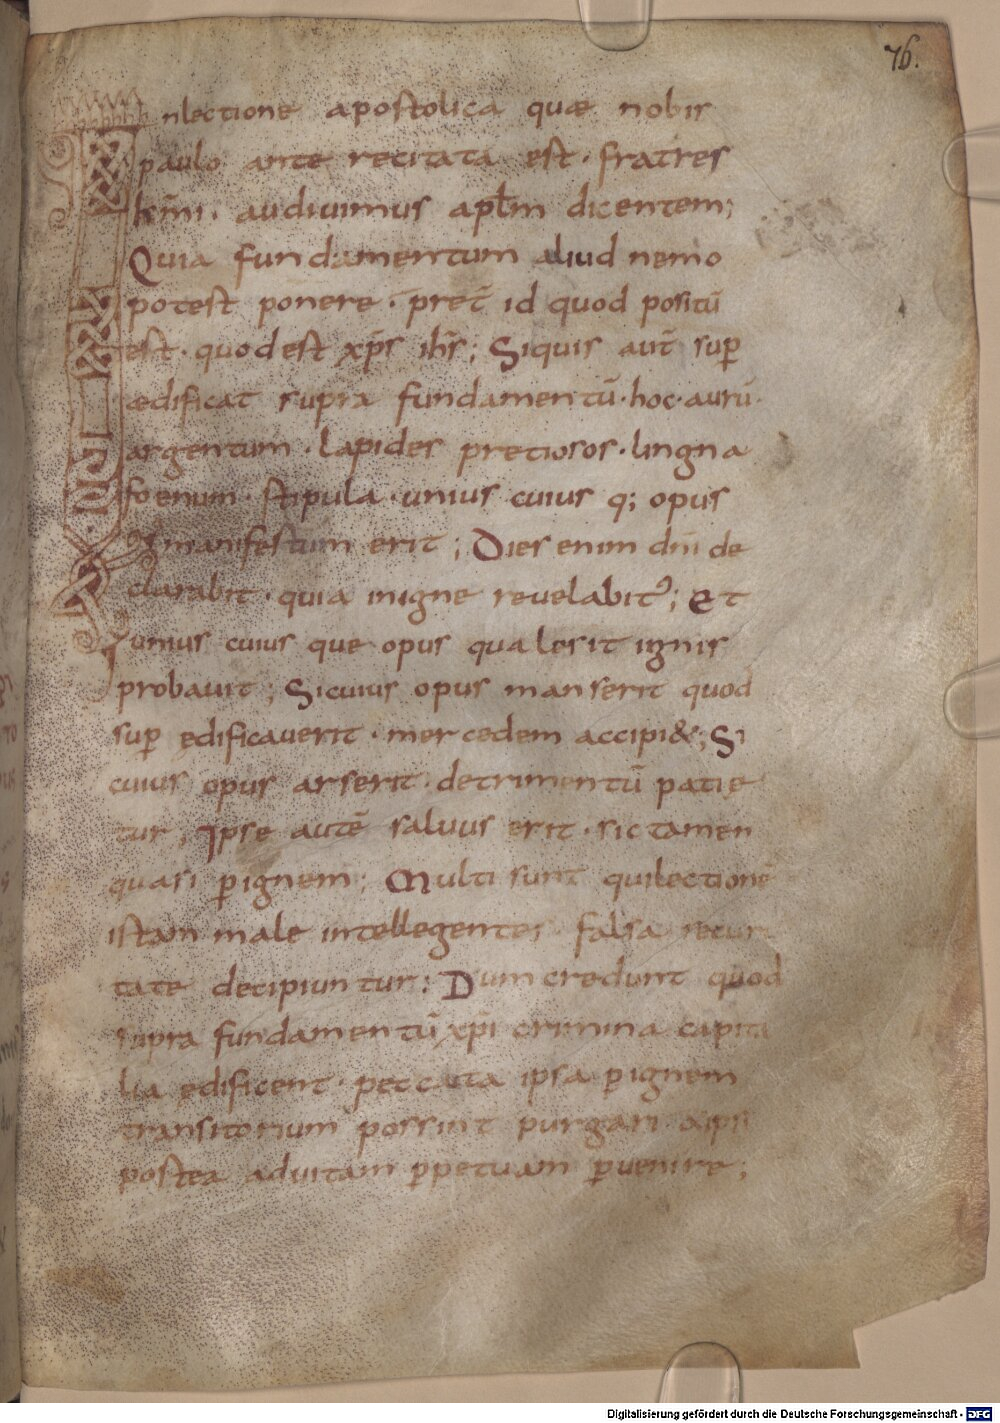 76.
Inlectione apostolica quae nobis
paulo ante recitata est · fratres
km̄i · audivimus aptl̄m dicentem;
Quia fundamentum aliud nemo
potest ponere · pret̄ id quod positū
est · quod est xp̄s ih̄s; Siquis aut̄ sup̲
aedificat supra fundamentū · hoc · aurū ·
argentum · lapides pretiosos · lingna
foenum · stipula · unius cuius q; opus
manifestum erit; Dies enim dn̄i de
clarabit · quia inigne revelabit᷒; Et
unius cuius que opus qualesit ignis
probavit; Sicuius opus manserit quod
sup̲ edificaverit · mercedem accipi&; Si
cuius opus arserit · detrimentū patie
tur; Ipse autē salvus erit · sic tamen
quasi p̲ignem; Multi sunt quilectionē
istam male intellegentes falsa securi
tate decipiuntur: Dum credunt quod
supra fundamentū xp̄i crimina capita
lia edificent · peccata ipsa p̲ignem
transitorium possint purgari
postea advitam p̲petuam p̲venire;
Digitalisierung gefördert durch die Deutsche Forschungsgemeinschaft - DFG